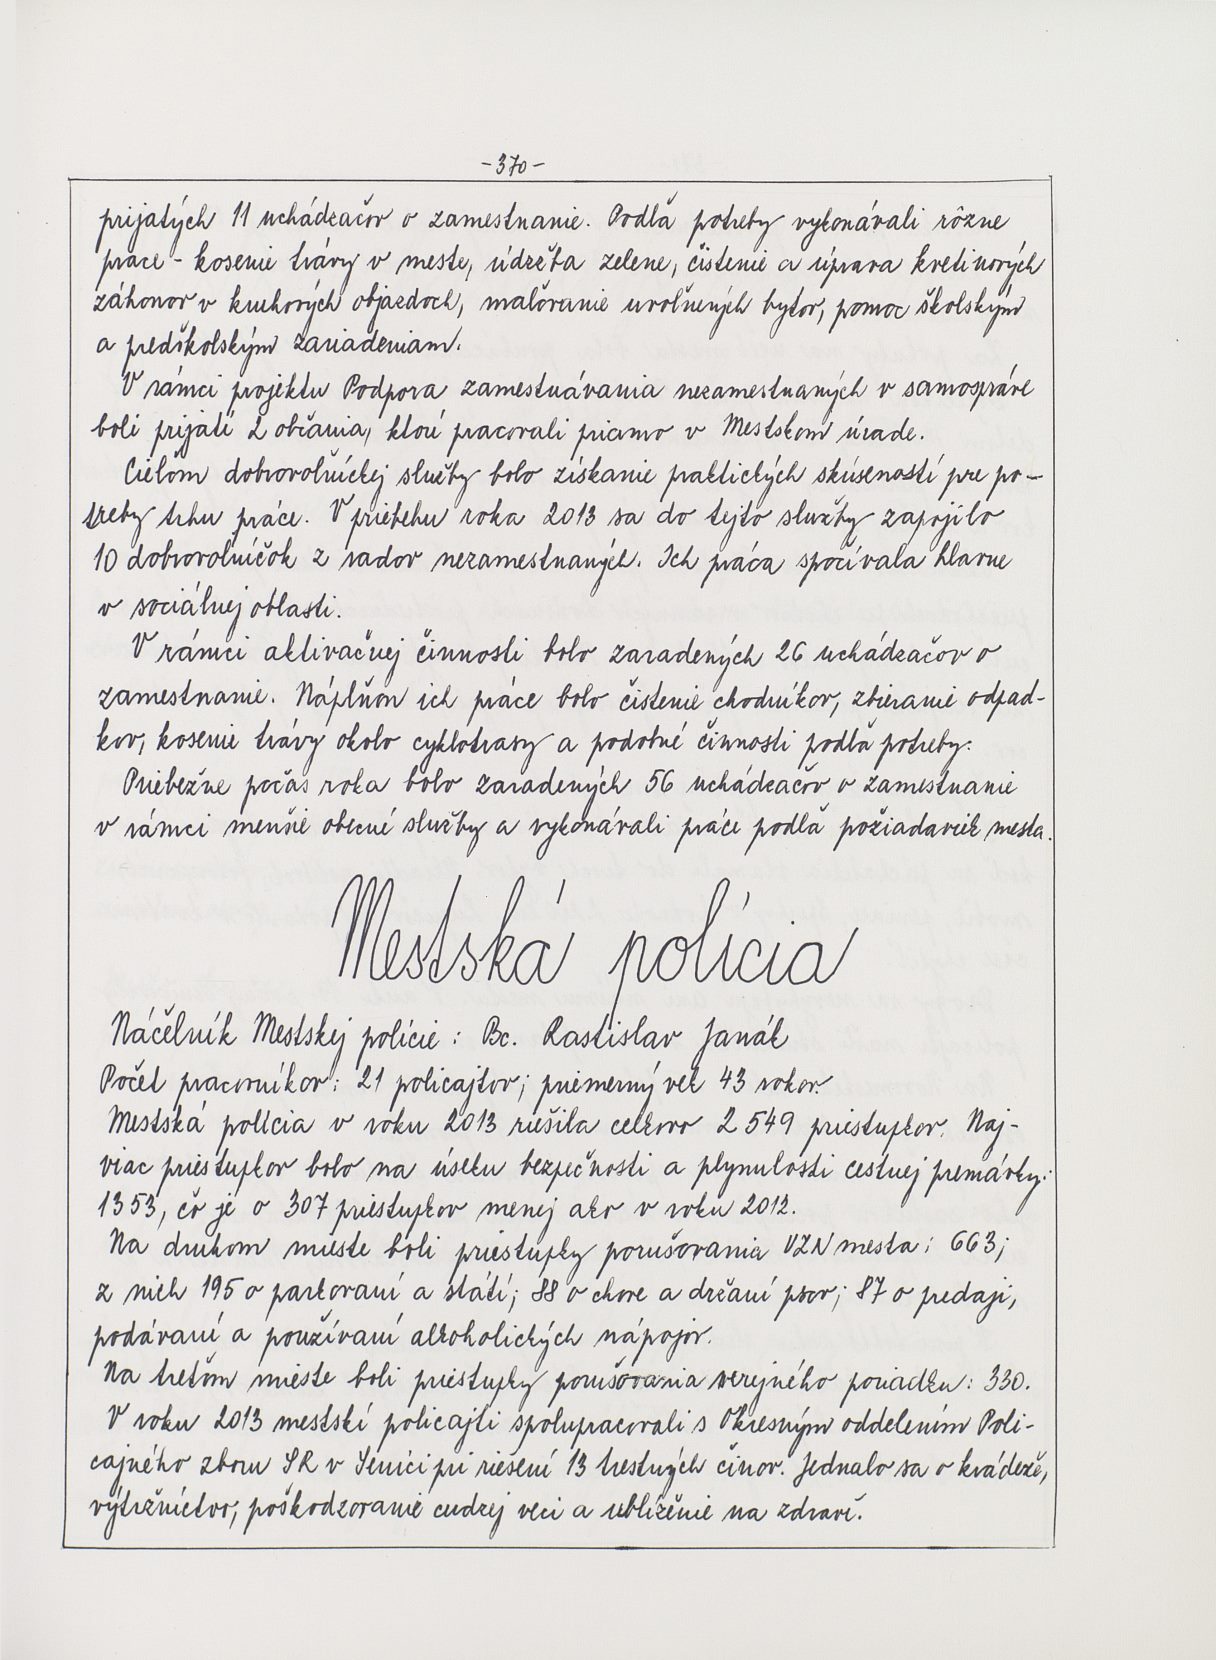 -370-
prijatých 11 uchádzačov o zamestnanie. Podľa potreby vykonávali rôzne
práce - kosenie trávy v meste, údržba zelene, čistenie a úprava kvetinových
záhonov v kruhových objazdoch, maľovanie uvoľnených bytov, pomoc školským
a predškolským zariadeniam.
V rámci projektu Podpora zamestnávania nezamestnaných v samospráve
boli prijatí 2 občania, ktorí pracovali priamo v Mestskom úrade.
Cieľom dobrovoľníckej služby bolo získanie praktických skúseností pre po-
treby trhu práce. V priebehu roka 2013 sa do tejto služby zapojilo
10 dobrovoľníčok z radov nezamestnaných. Ich práca spočívala hlavne
v sociálnej oblasti.
V rámci aktivačnej činnosti bolo zaradených 26 uchádzačov o
zamestnanie. Náplňou ich práce bolo čistenie chodníkov, zbieranie odpad-
kov, kosenie trávy okolo cyklotrasy a podobné činnosti podľa potreby.
Priebežne počas roka bolo zaradených 56 uchádzačov o zamestnanie
v rámci menšie obecné služby a vykonávali práce podľa požiadaviek mesta.
Mestská polícia
Náčelník Mestskej polície : Bc. Rastislav Janák
Počet pracovníkov: 21 policajtov; priemerný vek 43 rokov.
Mestská polícia v roku 2013 riešila celkovo 2 549 priestupkov. Naj-
viac priestupkov bolo na úseku bezpečnosti a plynulosti cestnej premávky:
1353, čo je o 307 priestupkov menej ako v roku 2012.
Na druhom mieste boli priestupky porušovania VZN mesta: 663;
z nich 195 o parkovaní a státí; 88 o chove a držaní psov; 87 o predaji,
podávaní a používaní alkoholických nápojov.
Na treťom mieste boli priestupky porušovania verejného poriadku: 330.
V roku 2013 mestskí policajti spolupracovali s Okresným oddelením Poli-
cajného zboru SR v Senici pri riešení 13 trestných činov. Jednalo sa o krádeže,
výtržníctvo, poškodzovanie cudzej veci a ublíženie na zdraví.